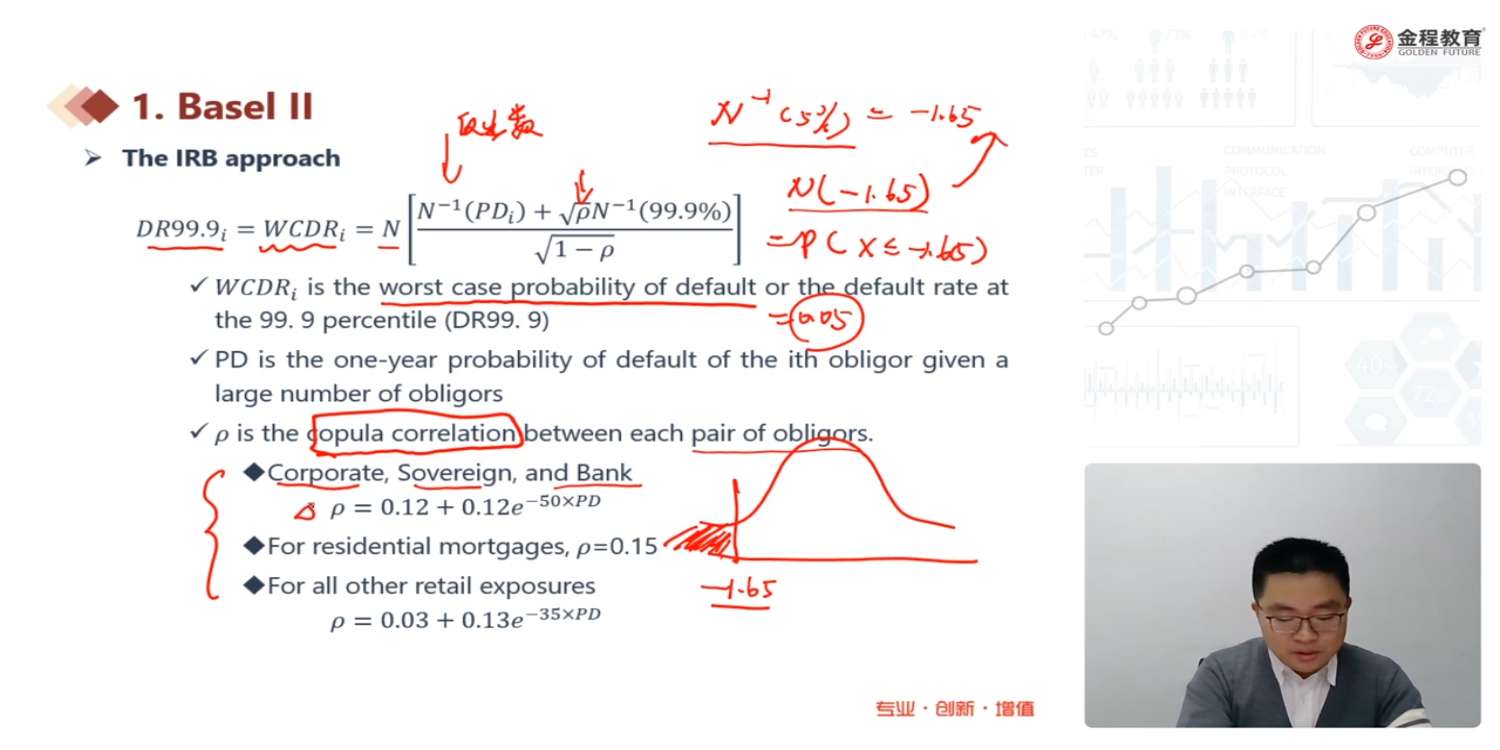 金程教育
GOLDEN FUTURE
1. Basel II
反函数
N⁻¹(5%) = -1.65
➢ The IRB approach
N(-1.65)
DR99.9ᵢ = WCDRᵢ = N[(N⁻¹(PDᵢ) + √ρN⁻¹(99.9%)) / √(1 − ρ)]
= P(X ≤ -1.65)
✓ WCDRᵢ is the worst case probability of default or the default rate at
the 99. 9 percentile (DR99. 9)
= 0.05
✓ PD is the one-year probability of default of the ith obligor given a
large number of obligors
✓ ρ is the copula correlation between each pair of obligors.
◆Corporate, Sovereign, and Bank
ρ = 0.12 + 0.12e^(−50×PD)
◆For residential mortgages, ρ=0.15
◆For all other retail exposures
-1.65
ρ = 0.03 + 0.13e^(−35×PD)
专业·创新·增值
COMMUNICATION
PROTOCOL
INTERFACE